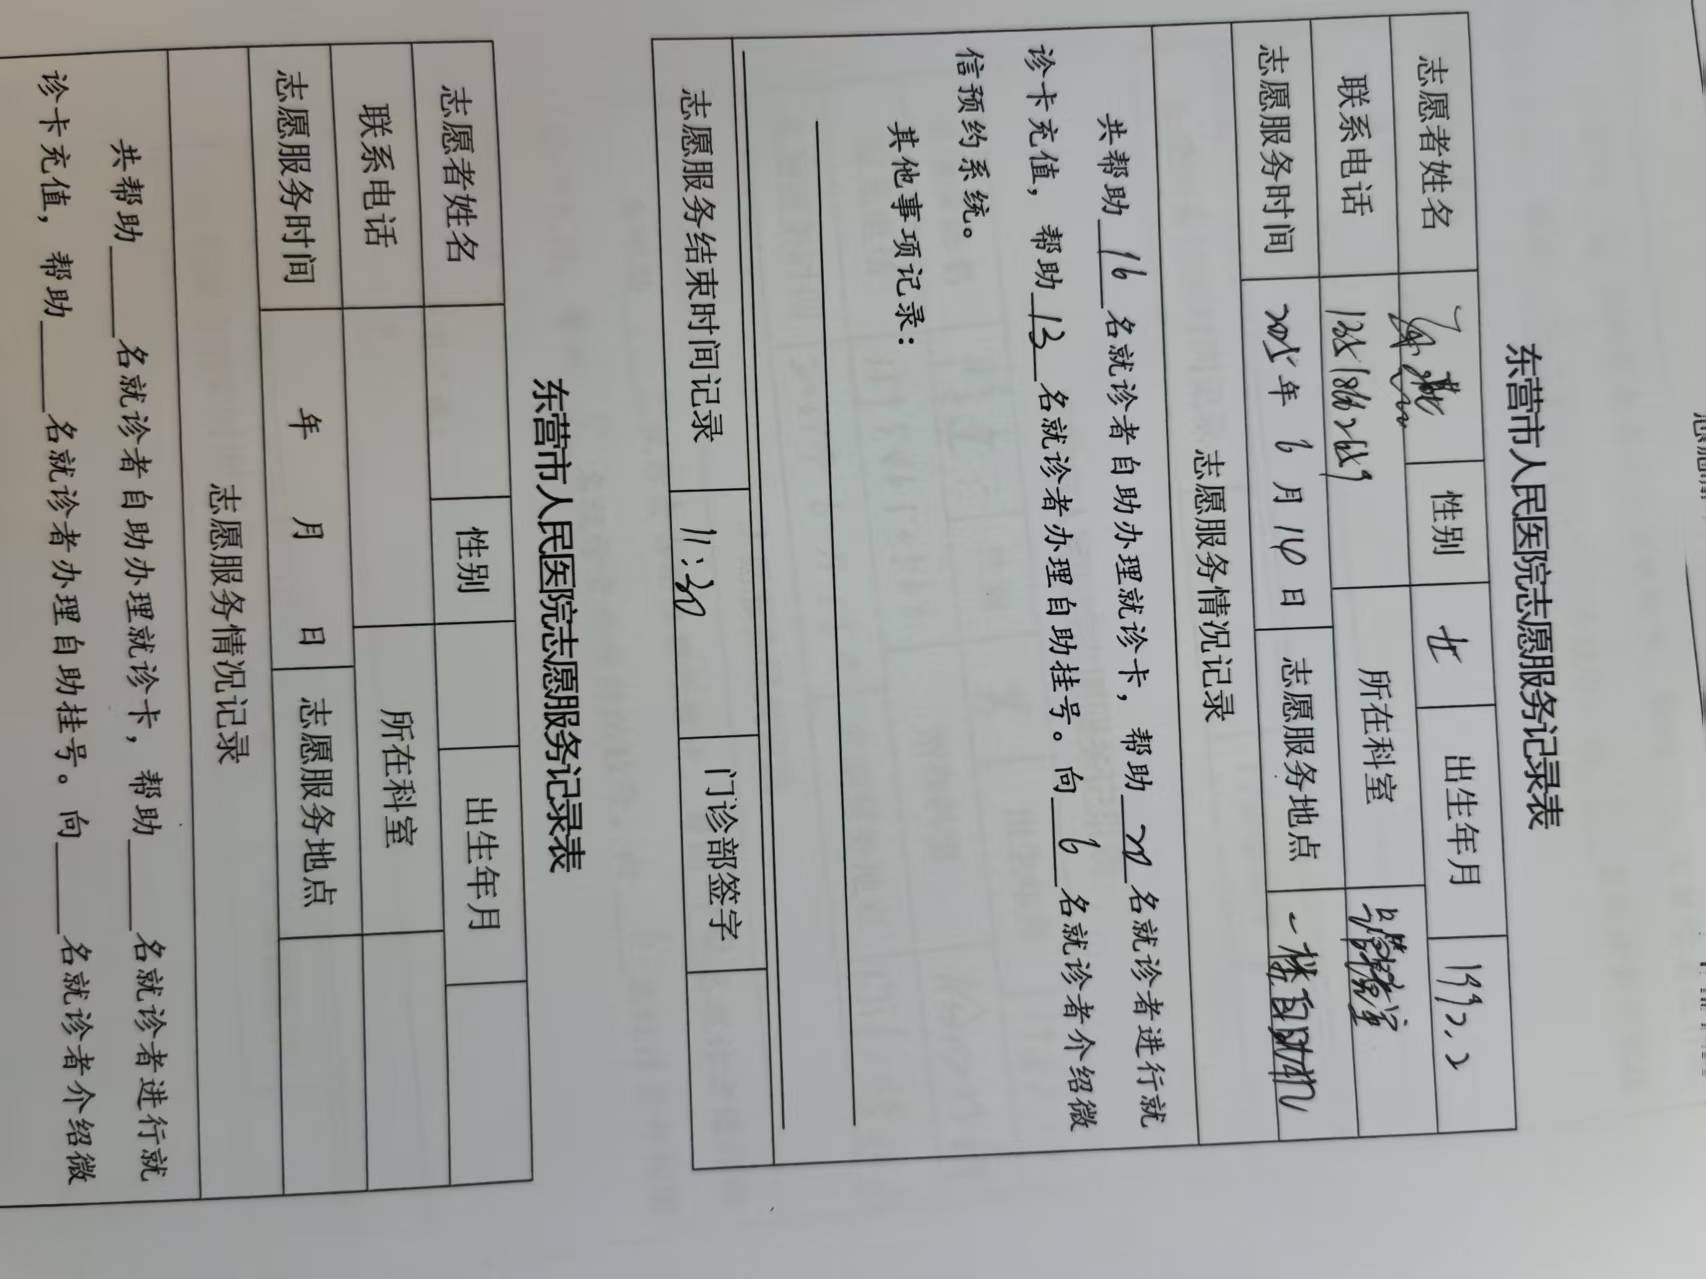 东营市人民医院志愿服务记录表
志愿者姓名 性别 女 出生年月 1992.2
联系电话 所在科室
志愿服务时间 2025年 6 月 14 日 志愿服务地点 一楼自助机
志愿服务情况记录
共帮助 16 名就诊者自助办理就诊卡，帮助 20 名就诊者进行就
诊卡充值，帮助 13 名就诊者办理自助挂号。向 6 名就诊者介绍微
信预约系统。
其他事项记录：
志愿服务结束时间记录 11:30 门诊部签字
东营市人民医院志愿服务记录表
志愿者姓名 性别 出生年月
联系电话 所在科室
志愿服务时间 年 月 日 志愿服务地点
志愿服务情况记录
共帮助____名就诊者自助办理就诊卡，帮助____名就诊者进行就
诊卡充值，帮助____名就诊者办理自助挂号。向____名就诊者介绍微